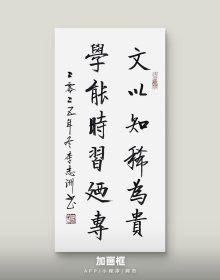 文以知稀為貴
學能時習廼專
二零二五年冬李志洲书
加画框
APP/小程序/网页